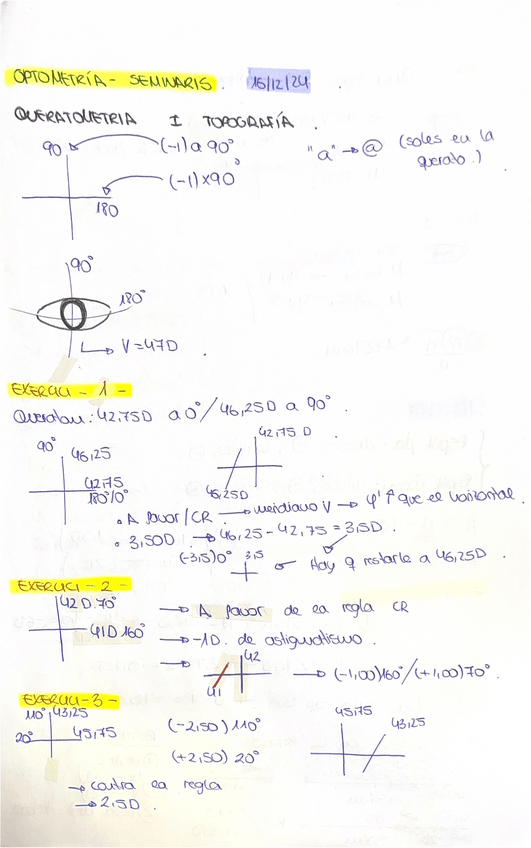 OPTOMETRÍA - SEMINARIS. 16/12/24.
QUERATOMETRIA I TOPOGRAFÍA.
90 (-1) a 90° "a" → @ (soles en la
querato.)
(-1) x 90°
180
90°
180°
V = 47D.
EXERCICI - 1 -
42,75D a 0° / 46,25D a 90°.
90° 46,25 42,75 D
42,75
180°/0° 46,25D
• A favor/CR. → meridiano V → φ' ↑ que el horizontal.
• 3,50D. → 46,25 - 42,75 = 3,5D.
(-3,5)0° 3,5 Hay q restarle a 46,25D.
EXERCICI - 2 -
42 D. 70° → A favor de la regla CR
41D 160° → -1D. de astigmatismo.
→ 42 → (-1,00)160°/(+1,00)70°.
41
EXERCICI - 3 -
110° 43,25 (-2,50) 110° 45,75 43,25
20° 45,75
(+2,50) 20°
→ contra la regla
→ 2,5D.